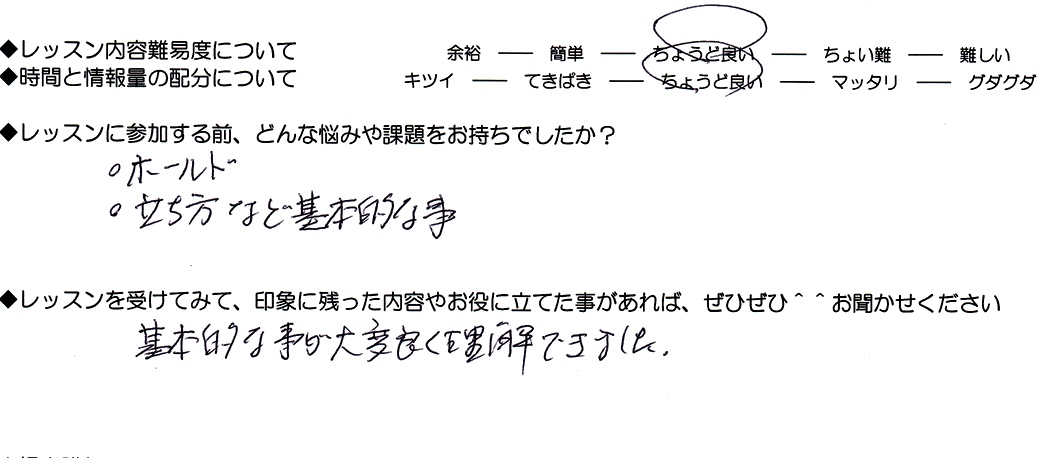 ◆レッスン内容難易度について　余裕 ― 簡単 ― ちょうど良い ― ちょい難 ― 難しい
◆時間と情報量の配分について　キツイ ― てきぱき ― ちょうど良い ― マッタリ ― グダグダ
◆レッスンに参加する前、どんな悩みや課題をお持ちでしたか？
○ホールド
○立ち方など基本的な事
◆レッスンを受けてみて、印象に残った内容やお役に立てた事があれば、ぜひぜひ＾＾お聞かせください
基本的な事が大変良く理解できました。